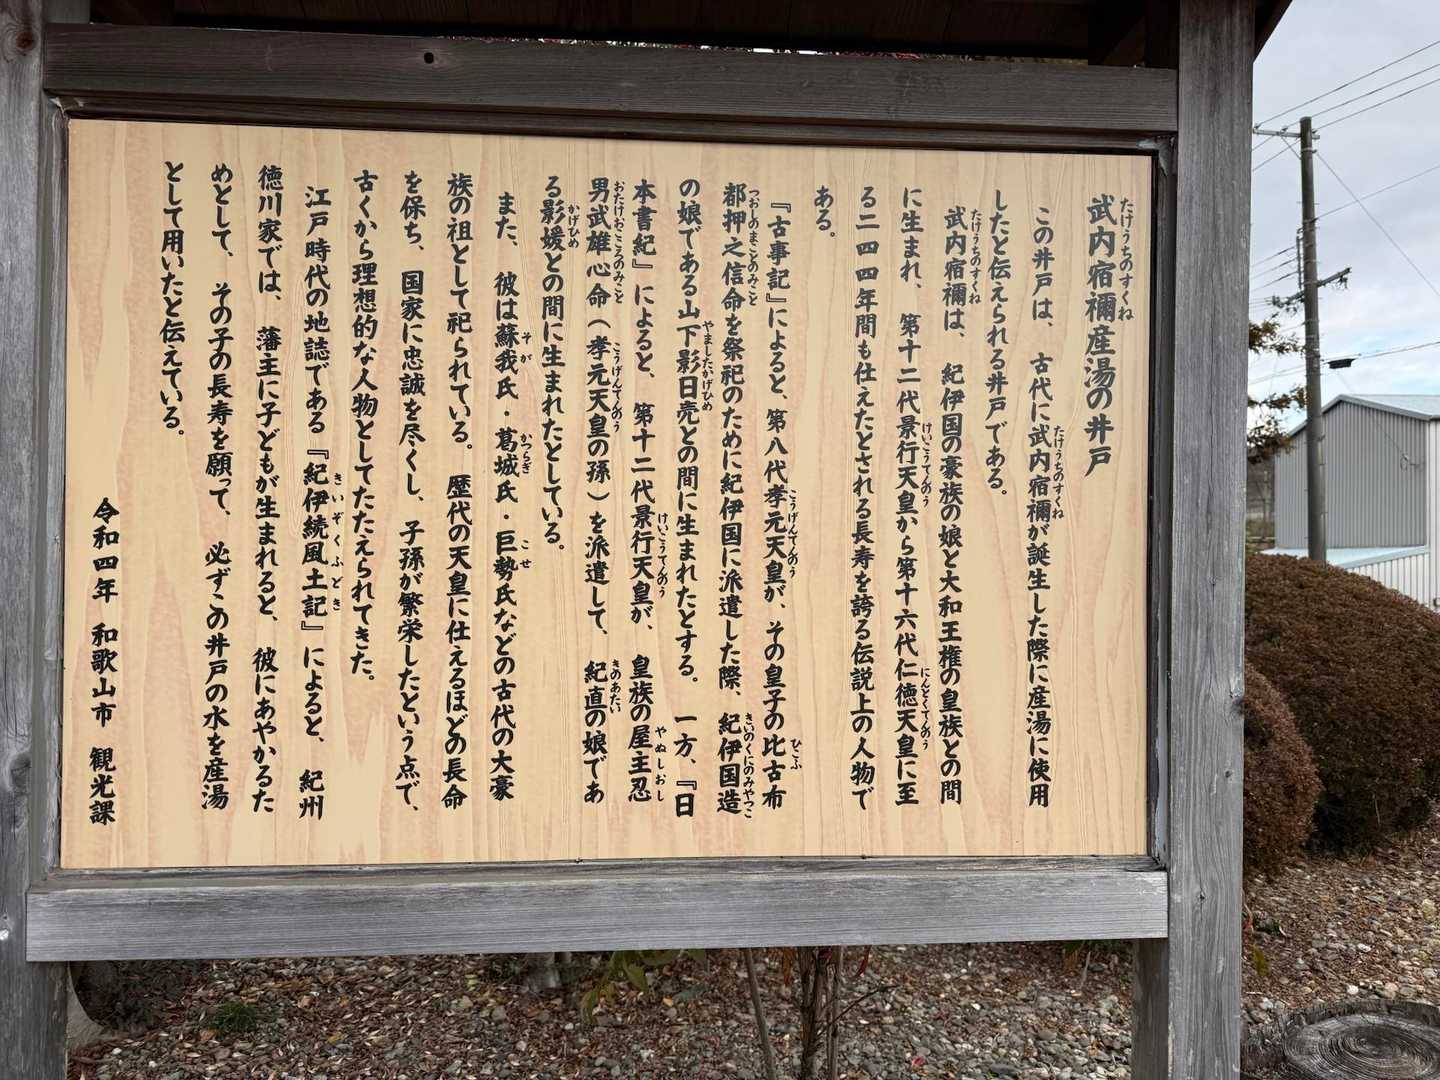 武内宿禰産湯の井戸
この井戸は、古代に武内宿禰が誕生した際に産湯に使用
したと伝えられる井戸である。
武内宿禰は、紀伊国の豪族の娘と大和王権の皇族との間
に生まれ、第十二代景行天皇から第十六代仁徳天皇に至
る二四四年間も仕えたとされる長寿を誇る伝説上の人物で
ある。
『古事記』によると、第八代孝元天皇が、その皇子の比古布
都押之信命を祭祀のために紀伊国に派遣した際、紀伊国造
の娘である山下影日売との間に生まれたとする。一方、『日
本書紀』によると、第十二代景行天皇が、皇族の屋主忍
男武雄心命（孝元天皇の孫）を派遣して、紀直の娘であ
る影媛との間に生まれたとしている。
また、彼は蘇我氏・葛城氏・巨勢氏などの古代の大豪
族の祖として祀られている。歴代の天皇に仕えるほどの長命
を保ち、国家に忠誠を尽くし、子孫が繁栄したという点で、
古くから理想的な人物としてたたえられてきた。
江戸時代の地誌である『紀伊続風土記』によると、紀州
徳川家では、藩主に子どもが生まれると、彼にあやかるた
めとして、その子の長寿を願って、必ずこの井戸の水を産湯
として用いたと伝えている。
令和四年 和歌山市 観光課